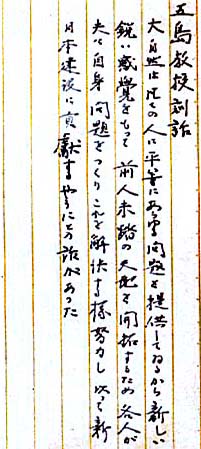 五島教授訓話
大自然は凡ての人に平等にある問題を提供してゐるから新しい
鋭い感覚をもって前人未踏の天地を開拓するため各人が
夫々自身問題をつくりこれを解決する様努力し以って新
日本建設に貢献するやうにとの話があった